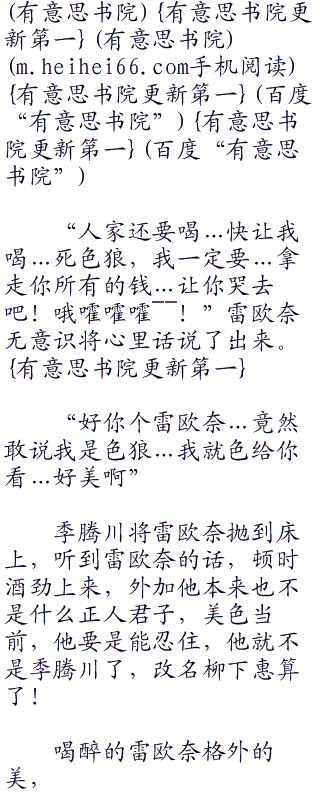 (有意思书院) {有意思书院更
新第一} (有意思书院)
(m.heihei66.com手机阅读)
{有意思书院更新第一} (百度
“有意思书院”) {有意思书
院更新第一} (百度“有意思
书院”)
“人家还要喝…快让我
喝…死色狼，我一定要…拿
走你所有的钱…让你哭去
吧！哦嚯嚯嚯￣￣！”雷欧奈
无意识将心里话说了出来。
{有意思书院更新第一}
“好你个雷欧奈…竟然
敢说我是色狼…我就色给你
看…好美啊”
季腾川将雷欧奈抛到床
上，听到雷欧奈的话，顿时
酒劲上来，外加他本来也不
是什么正人君子，美色当
前，他要是能忍住，他就不
是季腾川了，改名柳下惠算
了！
喝醉的雷欧奈格外的
美，